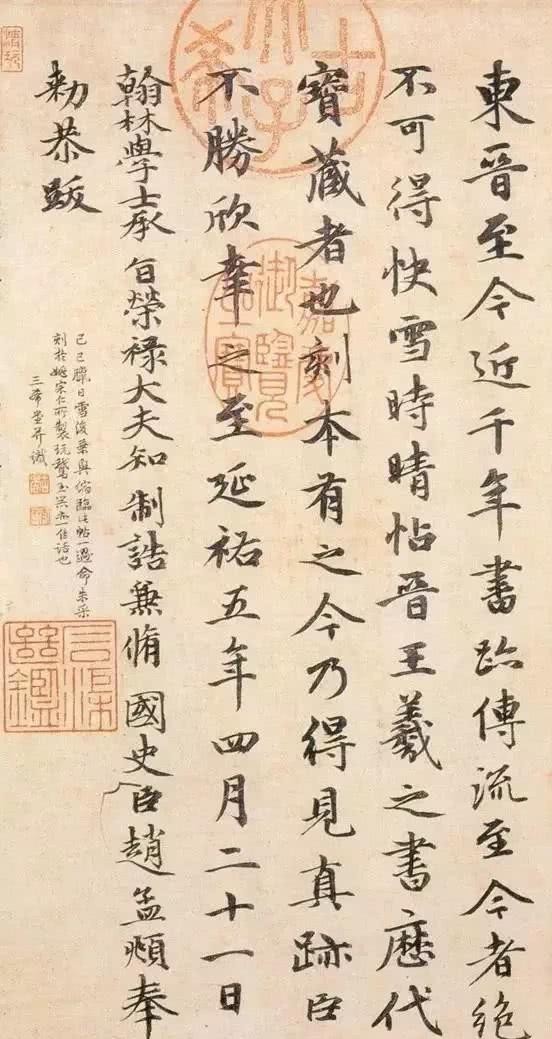 東晉至今近千年書跡傳流至今者絶
不可得快雪時晴帖晉王羲之書歷代
寶藏者也刻本有之今乃得見真跡臣
不勝欣幸之至延祐五年四月二十一日
翰林學士承旨榮祿大夫知制誥兼脩國史臣趙孟頫奉
勑恭跋
己巳臘日雪後乘興偶臨此帖一過命朱采
刻於姚宗仁所製玩鵞玉器亦一佳話也
三希堂并識
古希天子
嘉慶御覽之寶